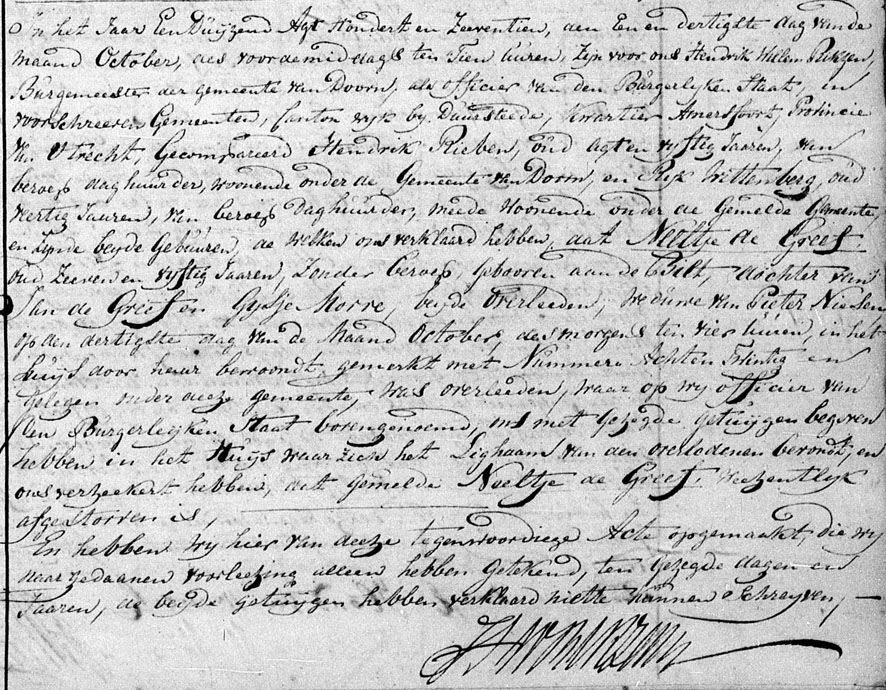 In het Jaar Een Duijzend Agt Hondert en Zeeventien, den Een en dertigste dag van de
maand October, des voordemiddags ten Tien uuren, Zijn voor ons Hendrik Willem
Burgemeester der Gemeente van Doorn, als officier van den Burgerlijken Staat, in
voorschreeven Gemeenten, Canton wyk by Duurstede, Kwartier Amersfoort, Provincie
van Utrecht, Gecompareerd Hendrik Rieben, oud agt en vyftig Jaaren, van
beroep daghuurder, woonende onder de Gemeente van Doorn, en Ryk Wittenberg, oud
veertig Jaaren, van beroep Daghuurder, meede woonende onder de Gemelde Gemeente,
en Zynde beyde Gebuuren, de welken ons verklaard hebben, dat Neeltje de Greef
oud Zeeven en vyftig Jaaren, Zonder beroep, gebooren aan de Bilt, dochter van
Jan de Greef en Gysje Morre, beyde overleeden, weduwe van Pieter
op den dertigste dag van de Maand October, des morgens ten vier uuren, in het
Huys door haar bewoondt, gemerkt met Nummero Acht en Twintig en
gelegen onder deeze gemeente, was overleeden, waar op wy officier van
den Burgerlyken Staat bovengenoemd, ons met gezegde getuygen begeven
hebben in het Huys waar zich het Lighaam van den overledenen bevondt, en
ons verzeekert hebben, dat gemelde Neeltje de Greef. weezentlyk
afgestorven is,
En hebben wy hier van deeze tegenwoordige Acte opgemaakt, die wy
naar gedaanen voorleezing alleen hebben getekend, ten gezegde dagen en
Jaaren, de beyde getuygen hebben verklaard niette kunnen Schryven,